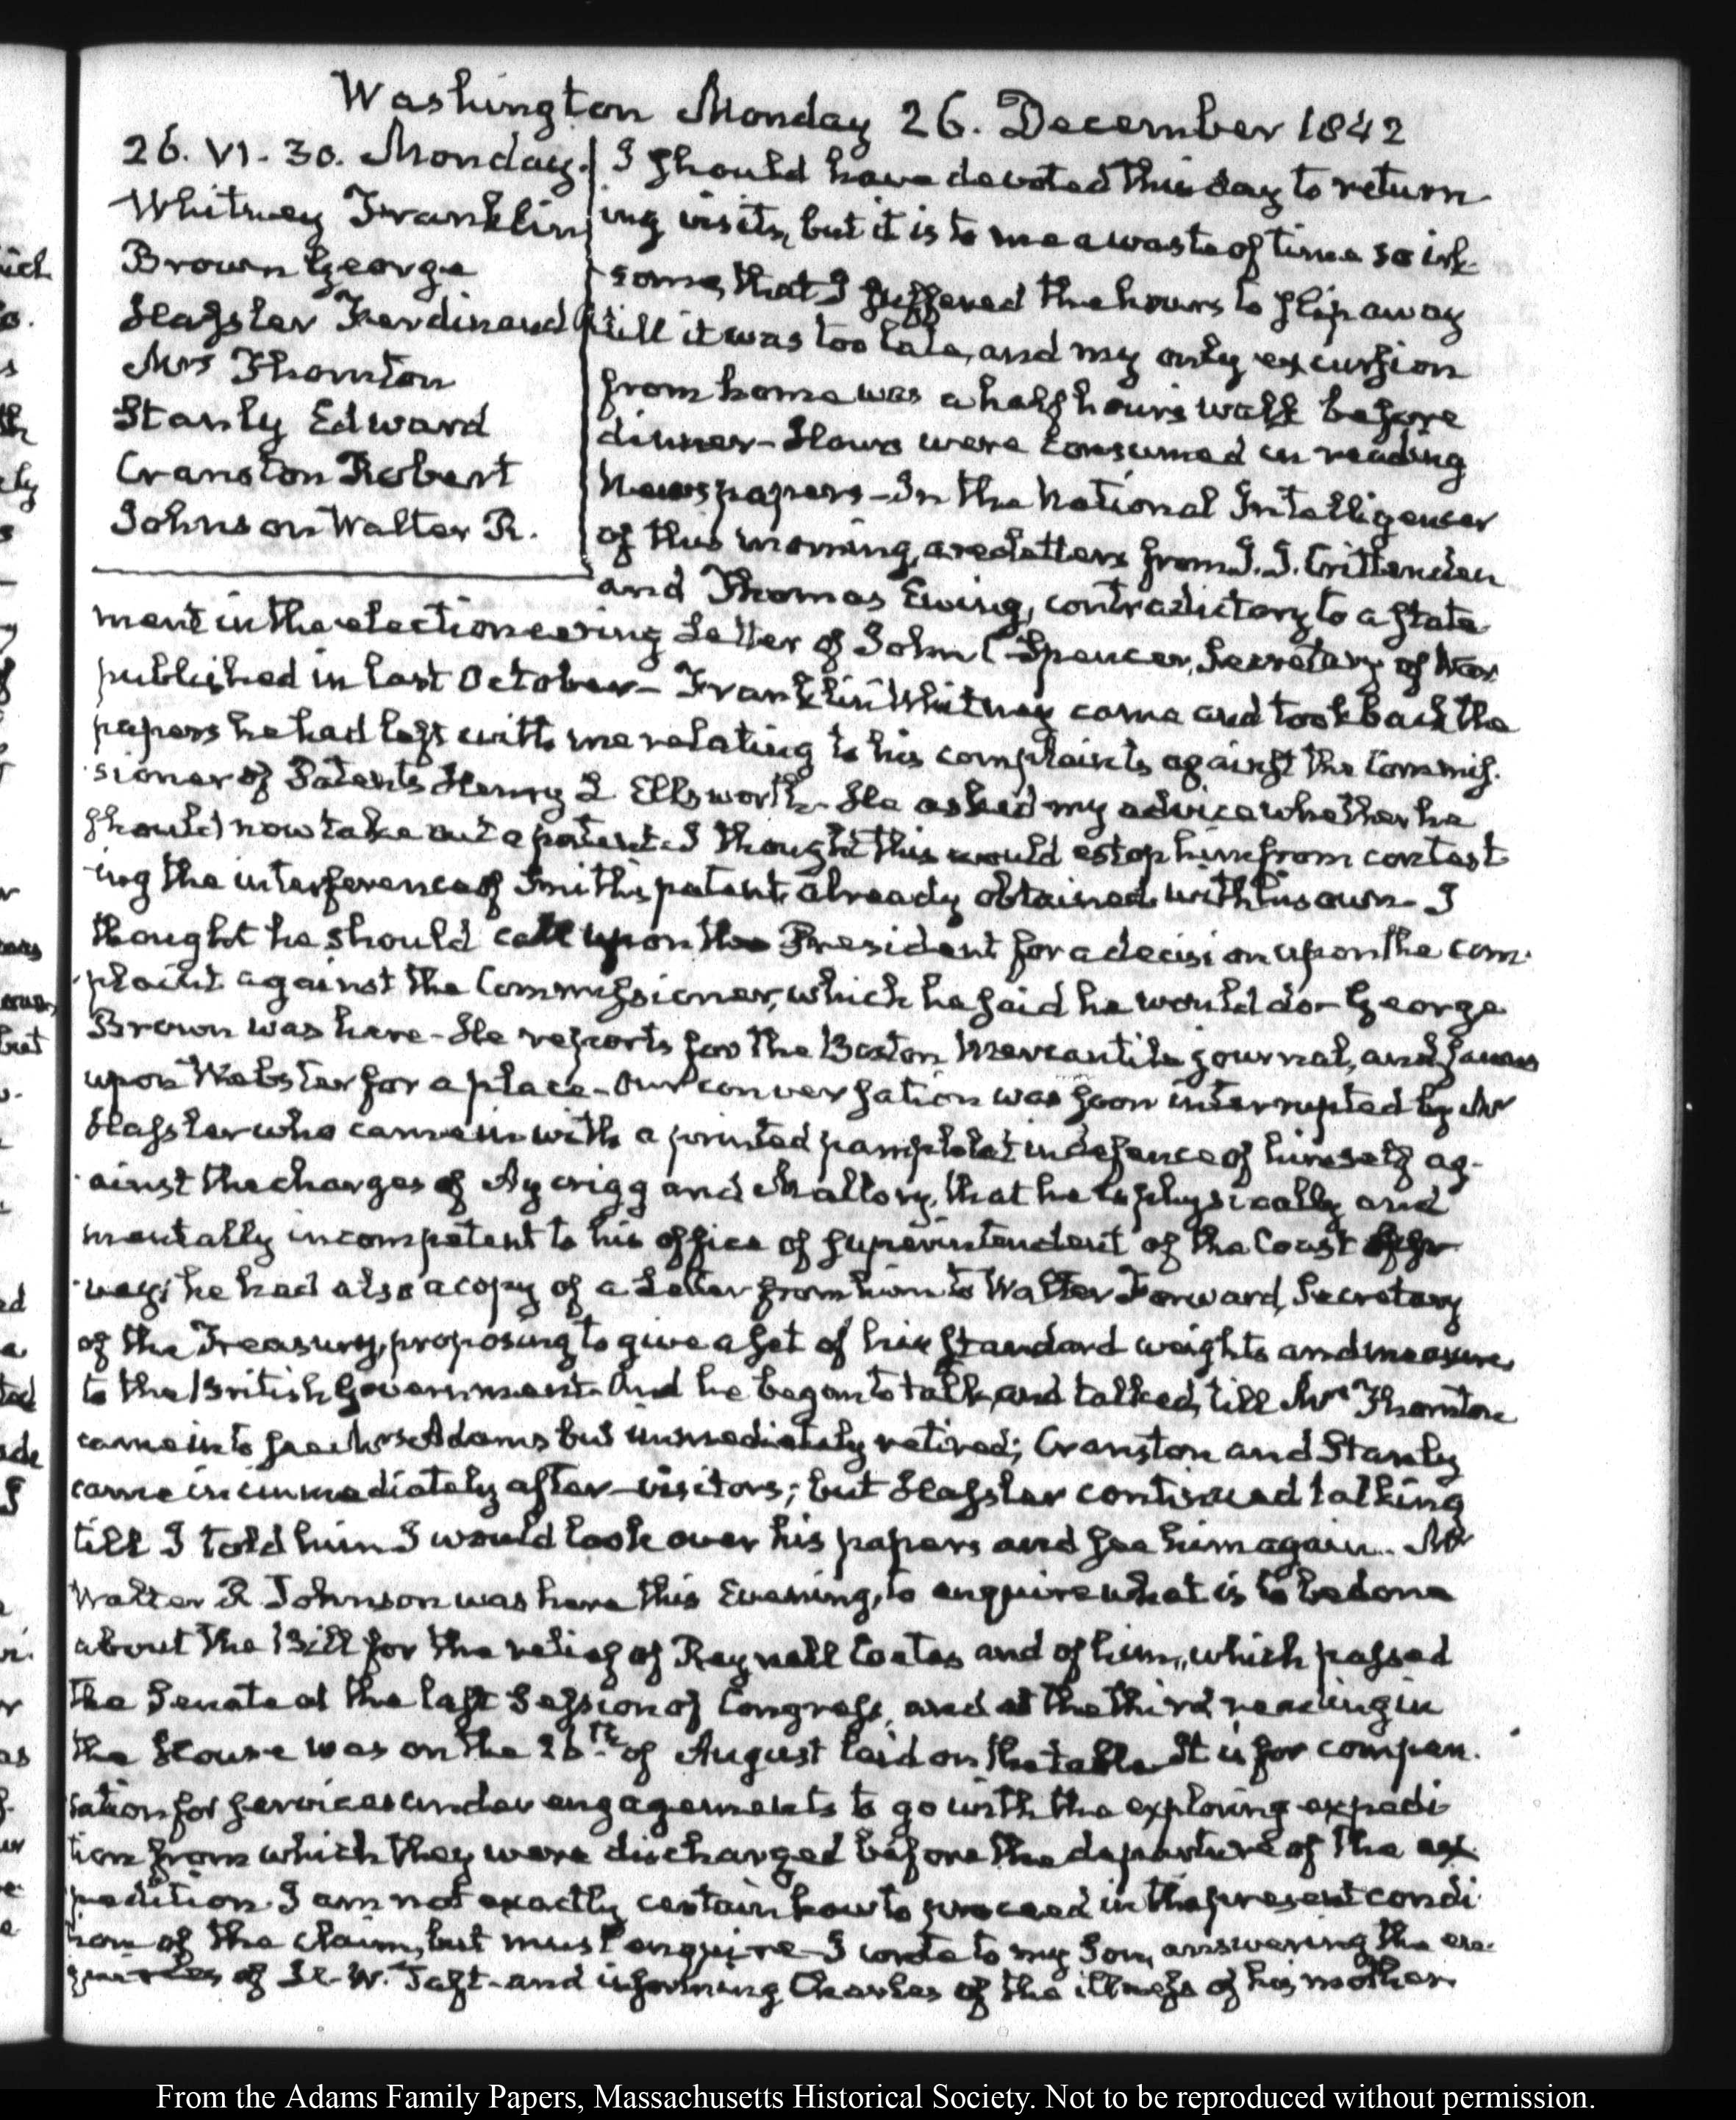 Washington Monday 26. December 1842
26. VI. 30. Monday.
Whitney Franklin
Brown George
Hassler Ferdinand
Mrs Thornton
Stanly Edward
Cranston Robert
Johnson Walter R.
I should have devoted this day to return-
ing visits, but it is to me a waste of time so irk-
some, that I suffered the hours to slip away
till it was too late, and my only excursion
from home was a half hour's walk before
dinner - Hours were consumed in reading
Newspapers - In the National Intelligencer
of this morning, are Letters from J. J. Crittenden
and Thomas Ewing, contradictory to a state
ment in the electioneering Letter of John C Spencer, Secretary of War
published in last October - Franklin Whitney came and took back the
papers he had left with me relating to his complaints against the Commis-
sioner of Patents Henry L Ellsworth - He asked my advice whether he
should now take out a patent - I thought this would estop him from contest-
ing the interference of Smith's patent already obtained with his own - I
thought he should call upon the President for a decision upon the com-
plaint against the Commissioner, which he said he would do - George
Brown was here - He reports for the Boston Mercantile journal, and fawns
upon Webster for a place - Our conversation was soon interrupted by Mr
Hassler who came in with a printed pamphlet in defence of himself ag-
ainst the charges of Aycrigg and Mallory, that he is physically and
mentally incompetent to his office of Superintendent of the Coast Sur
vey; he had also a copy of a Letter from him to Walter Forward, Secretary
of the Treasury, proposing to give a set of his standard weights and measures
to the British Government - And he began to talk, and talked, till Mrs Thornton
came in to see Mrs Adams but immediately retired; Cranston and Stanly
came in immediately after - visitors; but Hassler continued talking
till I told him I would look over his papers and see him again - Mr
Walter R Johnson was here this Evening, to enquire what is to be done
about the Bill for the relief of Reynell Coates and of him, which passed
the Senate at the last Session of Congress, and at the third reading in
the House was on the 26th of August laid on the table - It is for compen-
sation for services under engagements to go with the exploring expedi
tion from which they were discharged before the departure of the ex-
pedition. I am not exactly certain how to proceed in the present condi
tion of the claim, but must enquire - I wrote to my Son, answering the en-
quiries of W. Taft - and informing Charles of the illness of his mother.
From the Adams Family Papers, Massachusetts Historical Society. Not to be reproduced without permission.